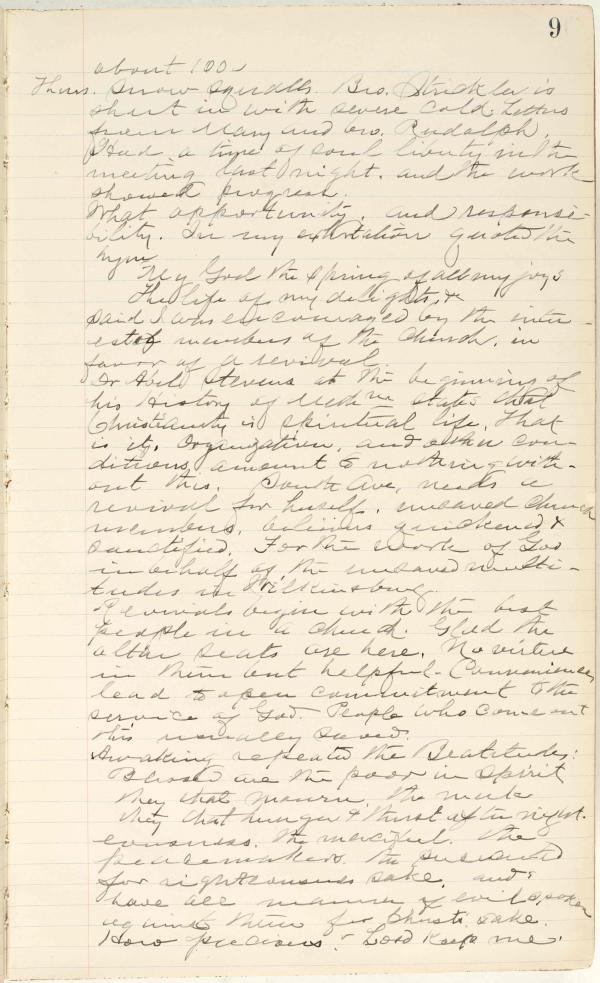 9
about 100.
Thurs. Snow squalls. Bro. Strickler is
shut in with severe cold. Letters
from Mary and Bro. Rudolph.
Had a type of soul liberty in the
meeting last night, and the work
showed progress.
What opportunity, and responsi-
bility. In my exhortation quoted the
hymn
My God the spring of all my joys
The life of my delights, &
said I was encouraged by the inter-
est of members of the church, in
favor of a revival
Dr Abel Stevens at the beginning of
his History of Meth states that
Christianity is spiritual life, that
is it, Organization, and other con-
ditions, amount to nothing with-
out this. South Ave, needs a
revival for herself, unsaved church
members, believers quickened &
sanctified. For the work of God
in behalf of the unsaved multi-
tudes in Wilkinsburg.
Revivals begin with the best
people in a church. Glad the
altar seats are here. No virtue
in them but helpful - Conveniences
lead to open commitment to the
service of God. People who come out
this usually saved.
Awaking repeated the Beatitudes:
Blessed are the poor in spirit
they that mourn, the meek
they that hunger & thirst after right-
eousness, the merciful. the
peacemakers, the persecuted
for righteousness sake, and
have all manner of evil spoken
against them for Christs sake.
How precious! Lord keep me!